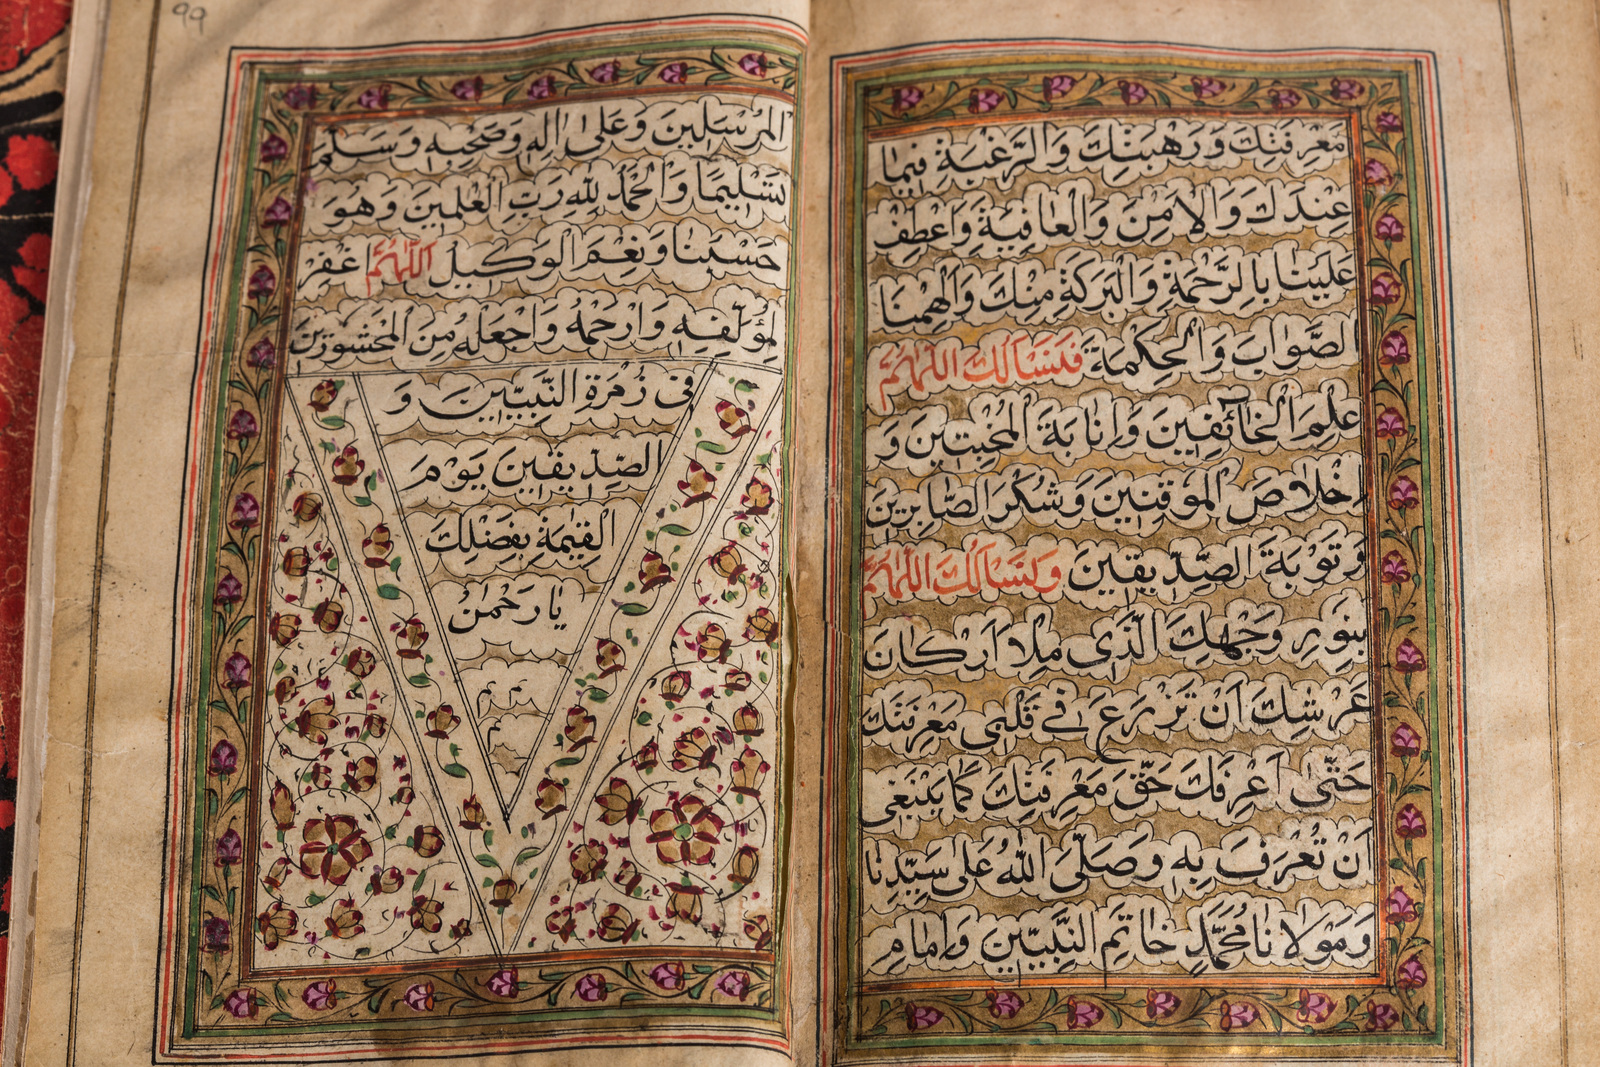 مَعْرِفَتِكَ وَرَهْبَتِكَ وَالرَّغْبَةِ فِيمَا
عِنْدَكَ وَالْاَمْنِ وَالْعَافِيَةِ وَاعْطِفْ
عَلَيْنَا بِالرَّحْمَةِ وَالْبَرَكَةِ مِنْكَ وَاَلْهِمْنَا
الصَّوَابَ وَالْحِكْمَةَ فَنَسْاَلُكَ اللّٰهُمَّ
عِلْمَ الْخَآئِفِينَ وَاِنَابَةَ الْمُخْبِتِينَ وَ
اِخْلَاصَ الْمُوقِنِينَ وَشُكْرَ الصَّابِرِينَ
وَتَوْبَةَ الصِّدِّيقِينَ وَنَسْاَلُكَ اللّٰهُمَّ
بِنُورِ وَجْهِكَ الَّذِى مَلَاَ اَرْكَانَ
عَرْشِكَ اَنْ تَزْرَعَ فِى قَلْبِى مَعْرِفَتَكَ
حَتّٰى اَعْرِفَكَ حَقَّ مَعْرِفَتِكَ كَمَا يَنْبَغِى
اَنْ تُعْرَفَ بِهِ وَصَلَّى اللّٰهُ عَلٰى سَيِّدِنَا
وَمَوْلَانَا مُحَمَّدٍ خَاتَمِ النَّبِيِّينَ وَاِمَامِ
99
الْمُرْسَلِينَ وَعَلٰى اٰلِهِ وَصَحْبِهِ وَسَلَّمَ
تَسْلِيمًا وَالْحَمْدُ لِلّٰهِ رَبِّ الْعٰلَمِينَ وَهُوَ
حَسْبُنَا وَنِعْمَ الْوَكِيلُ اَللّٰهُمَّ اغْفِرْ
لِمُؤَلِّفِهِ وَارْحَمْهُ وَاجْعَلْهُ مِنَ الْمَحْشُورِينَ
فِى زُمْرَةِ النَّبِيِّينَ وَ
الصِّدِّيقِينَ يَوْمَ
الْقِيٰمَةِ بِفَضْلِكَ
يَا رَحْمٰنُ
م م
م